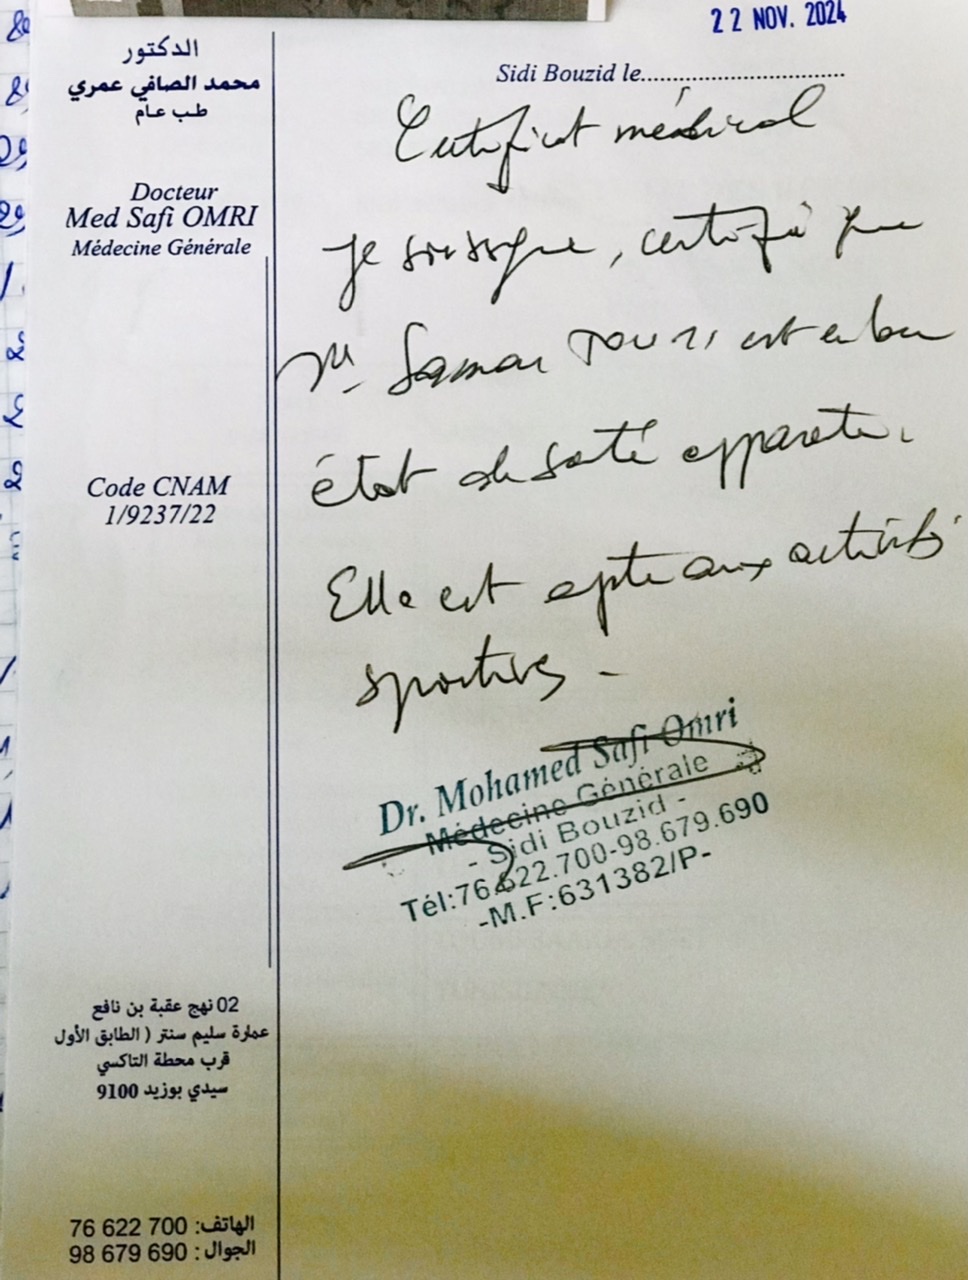 22 NOV. 2024
الدكتور
محمد الصافي عمري
طب عام
Docteur
Med Safi OMRI
Médecine Générale
Code CNAM
1/9237/22
Sidi Bouzid le
Certificat médical
Je soussigné, certifie que
Samar est en bon
état de santé apparente.
Elle est apte aux activités
sportives -
Dr. Mohamed Safi Omri
Médecine Générale
- Sidi Bouzid -
Tél:76.622.700-98.679.690
-M.F:631382/P-
02 نهج عقبة بن نافع
عمارة سليم سنتر ( الطابق الأول
قرب محطة التاكسي
سيدي بوزيد 9100
الهاتف: 76 622 700
الجوال : 98 679 690